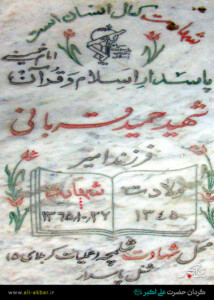 شهادت کمال انسان است
امام خمینی
پاسدار اسلام و قرآن
شهید حمید قربانی
فرزند امیر
ولادت شهادت
۱۳۴۵ ۱۳۶۵/۱۰/۲۷
محل شهادت شلمچه عملیات کربلای ۵
شغل پاسدار
www.ali-akbar.ir
گردان حضرت علی اکبر